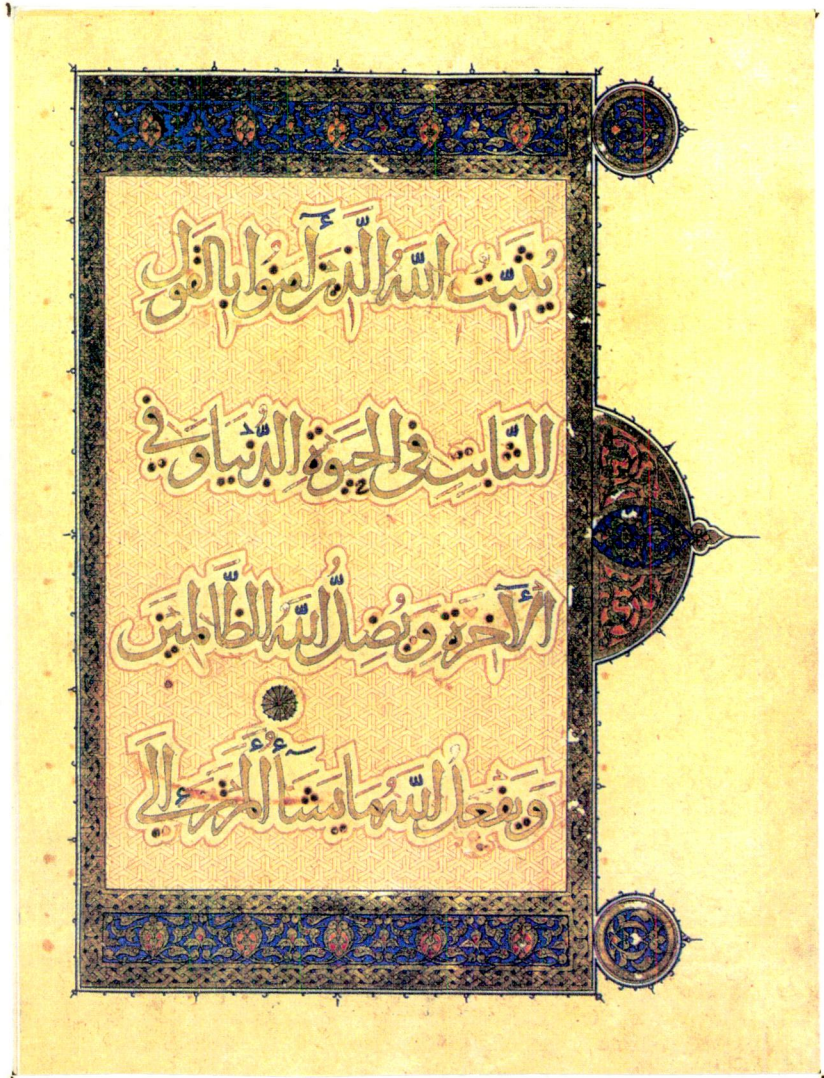 يُثَبِّتُ اللَّهُ الَّذِينَ آمَنُوا بِالْقَوْلِ
الثَّابِتِ فِي الْحَيَوةِ الدُّنْيَا وَفِي
الْآخِرَةِ وَيُضِلُّ اللَّهُ الظَّالِمِينَ
وَيَفْعَلُ اللَّهُ مَا يَشَآءُ أَلَمْ تَرَ إِلَى